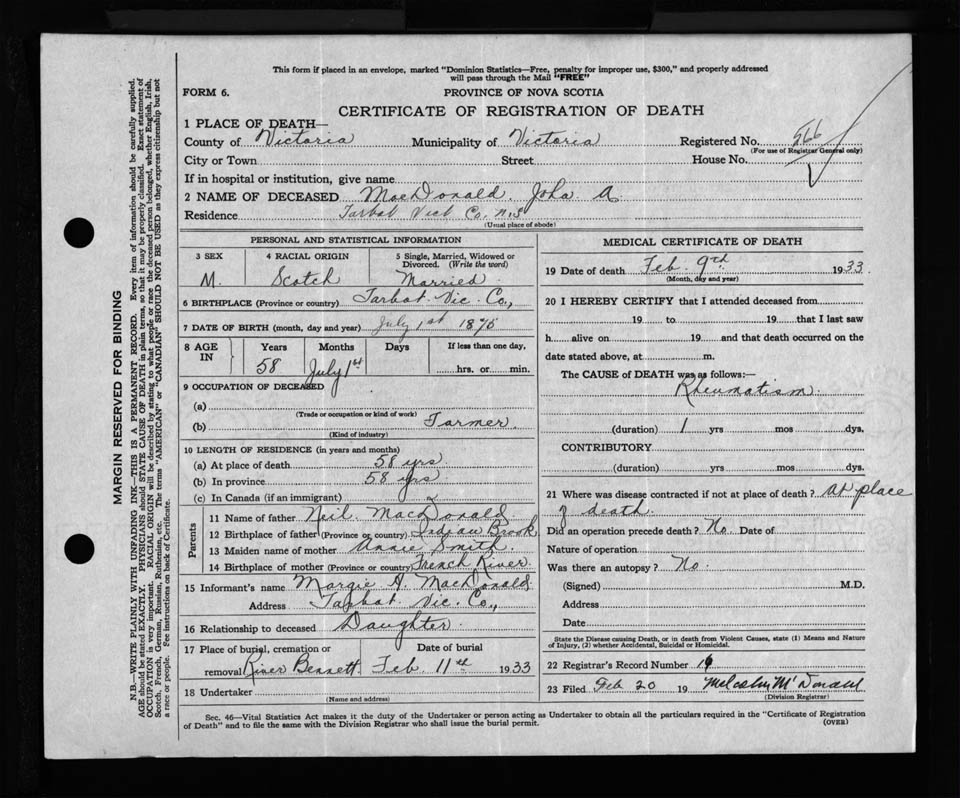 This form if placed in an envelope, marked "Dominion Statistics—Free, penalty for improper use, $300," and properly addressed
will pass through the Mail "FREE"
FORM 6.
PROVINCE OF NOVA SCOTIA
CERTIFICATE OF REGISTRATION OF DEATH
1 PLACE OF DEATH—
County of Victoria Municipality of Victoria Registered No. 566
(For use of Registrar General only)
City or Town Street House No.
If in hospital or institution, give name
2 NAME OF DECEASED MacDonald, John A
Residence Tarbot Vict Co. N.S
(Usual place of abode)
PERSONAL AND STATISTICAL INFORMATION
3 SEX 4 RACIAL ORIGIN 5 Single, Married, Widowed or
Divorced. (Write the word)
M. Scotch Married
6 BIRTHPLACE (Province or country) Tarbot Vic. Co,
7 DATE OF BIRTH (month, day and year) July 1st 1875
8 AGE IN Years Months Days If less than one day,
58 July 1st hrs. or min.
9 OCCUPATION OF DECEASED
(a)
(Trade or occupation or kind of work)
(b) Farmer.
(Kind of industry)
10 LENGTH OF RESIDENCE (in years and months)
(a) At place of death 58 yrs
(b) In province 58 yrs
(c) In Canada (if an immigrant)
Parents
11 Name of father Neil MacDonald
12 Birthplace of father (Province or country) Indian Brook
13 Maiden name of mother Annie Smith.
14 Birthplace of mother (Province or country) French River
15 Informant's name Margie A. MacDonald
Address Tarbot Vic. Co,
16 Relationship to deceased Daughter.
17 Place of burial, cremation or Date of burial
removal River Bennett Feb 11th 1933
18 Undertaker
(Name and address)
MEDICAL CERTIFICATE OF DEATH
19 Date of death Feb. 9th 1933.
(Month, day and year)
20 I HEREBY CERTIFY that I attended deceased from
19 to 19 that I last saw
h alive on 19 and that death occurred on the
date stated above, at m.
The CAUSE of DEATH was as follows:—
Rheumatism.
(duration) 1 yrs mos dys.
CONTRIBUTORY
(duration) yrs mos dys.
21 Where was disease contracted if not at place of death? At place
of death.
Did an operation precede death? No Date of
Nature of operation
Was there an autopsy? No.
(Signed) M.D.
Address
Date
State the Disease causing Death, or in death from Violent Causes, state (1) Means and Nature
of Injury, (2) whether Accidental, Suicidal or Homicidal.
22 Registrar's Record Number
23 Filed Feb 20 19 Malcolm McDonald
(Division Registrar)
Sec. 46—Vital Statistics Act makes it the duty of the Undertaker or person acting as Undertaker to obtain all the particulars required in the "Certificate of Registration
of Death" and to file the same with the Division Registrar who shall issue the burial permit.
(OVER)
MARGIN RESERVED FOR BINDING
N.B.—WRITE PLAINLY WITH UNFADING INK—THIS IS A PERMANENT RECORD. Every item of information should be carefully supplied.
AGE should be stated EXACTLY. PHYSICIANS should STATE CAUSE OF DEATH in plain terms, so that it may be properly classified. Exact statement of
OCCUPATION is very important. RACIAL ORIGIN will be described by stating to what people or race the deceased person belonged, whether English, Irish,
Scotch, French, German, Russian, Ruthenian, etc. The terms "AMERICAN" or "CANADIAN" SHOULD NOT BE USED as they express citizenship but not
a race or people. See instructions on back of Certificate.